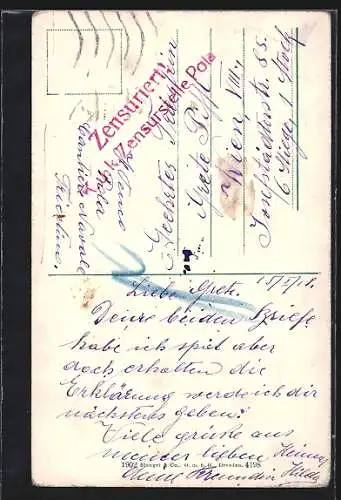 Zensuriert!
k.u.k. Zensurstelle Pola
Pola
Cantiere Navale
Geehrtes Fräulein
Grete
Wien, VIII.,
Josefstädterstr. 85.
6 Stiege 1. Stock
Liebe Grete.
Deine beiden Briefe
habe ich spät aber
doch erhalten die
Erklärung werde ich dir
nächstens geben.
Viele grüße aus
meiner lieben Heimat
deine Freundin Hilda
1902 Stengel & Co., G. m. b. H., Dresden. 4198.